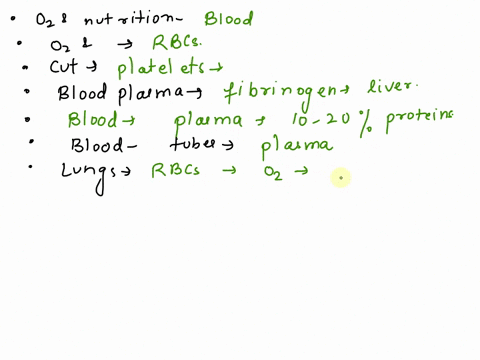 • O2 & nutrition- Blood
• O2 & → RBCs.
• Cut → platelets →
• Blood plasma → fibrinogen → liver.
• Blood → plasma → 10-20% proteins
• Blood- tubes → plasma
• Lungs → RBCs → O2 →